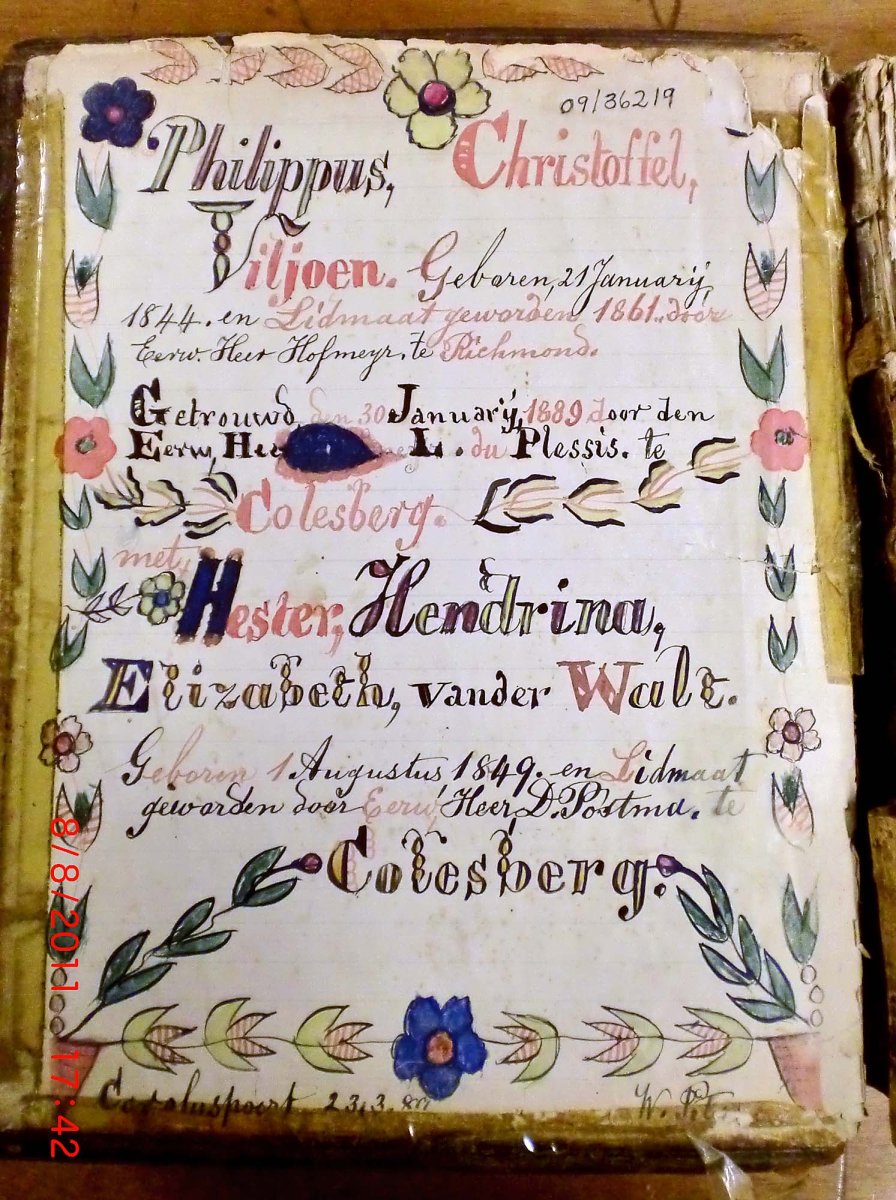 09/36219
Philippus, Christoffel,
Viljoen. Geboren, 21 Januarij,
1844. en Lidmaat geworden 1861. door
Eerw. Heer Hofmeyr. te Richmond.
Getrouwd den 30 Januarij, 1889 door den
Eerw, Hee L. du Plessis. te
Colesberg.
met,
Hester, Hendrina,
Elizabeth, vander Walt.
Geboren 1 Augustus, 1849. en Lidmaat
geworden door Eerw, Heer, D. Postma. te
Colesberg.
23,3.
W.
8/8/2011 17:42